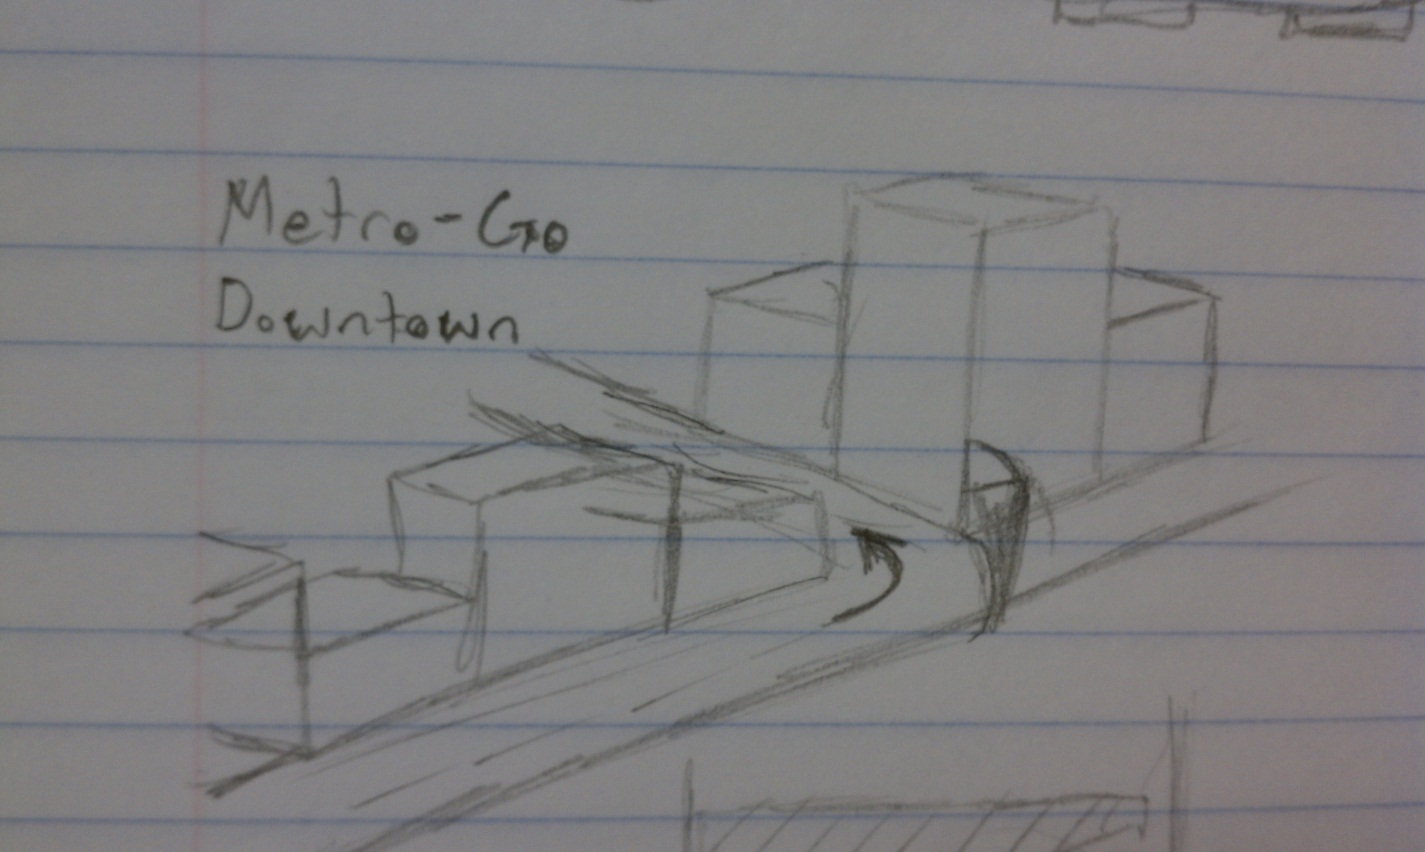 Metro-Go
Downtown